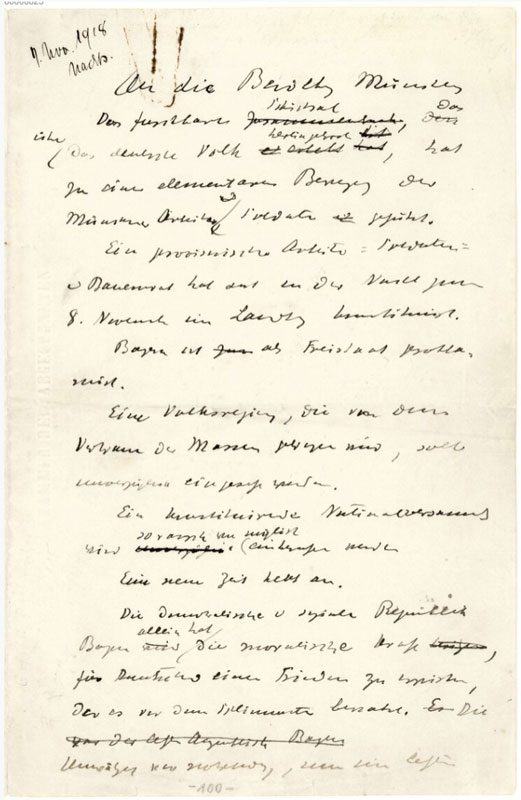 7. Nov. 1918
Nachts.
An die Bevölk Münchens
Schicksal Das
Das furchtbare
über hereingebrochen ist
das deutsche Volk hat, hat
zu einer elementaren Bewegg der
Münchner Arbeiter Soldaten geführt.
Ein provisorischer Arbeiter= Soldaten=
u Bauernrat hat sich in der Nacht zum
8. November im Landtg konstituirt.
Bayern ist zum als Freistaat prokla-
mirt.
Eine Volksregierg, die von dem
Vertrauen der Massen getragen wird, soll
unverzüglich eingesetzt werden.
Ein konstituirende Nationalversammlg
so rasch wie möglich
wird unverzüglich einberufen werden
Eine neue Zeit hebt an.
Die demokratische u soziale Republik
allein hat
Bayern wird die moralische Kraft
für Deutschld einen Frieden zu erwirken,
der es vor dem Schlimmsten bewahrt. Die
Bayern
Umwälzg war notwendig,
-100-